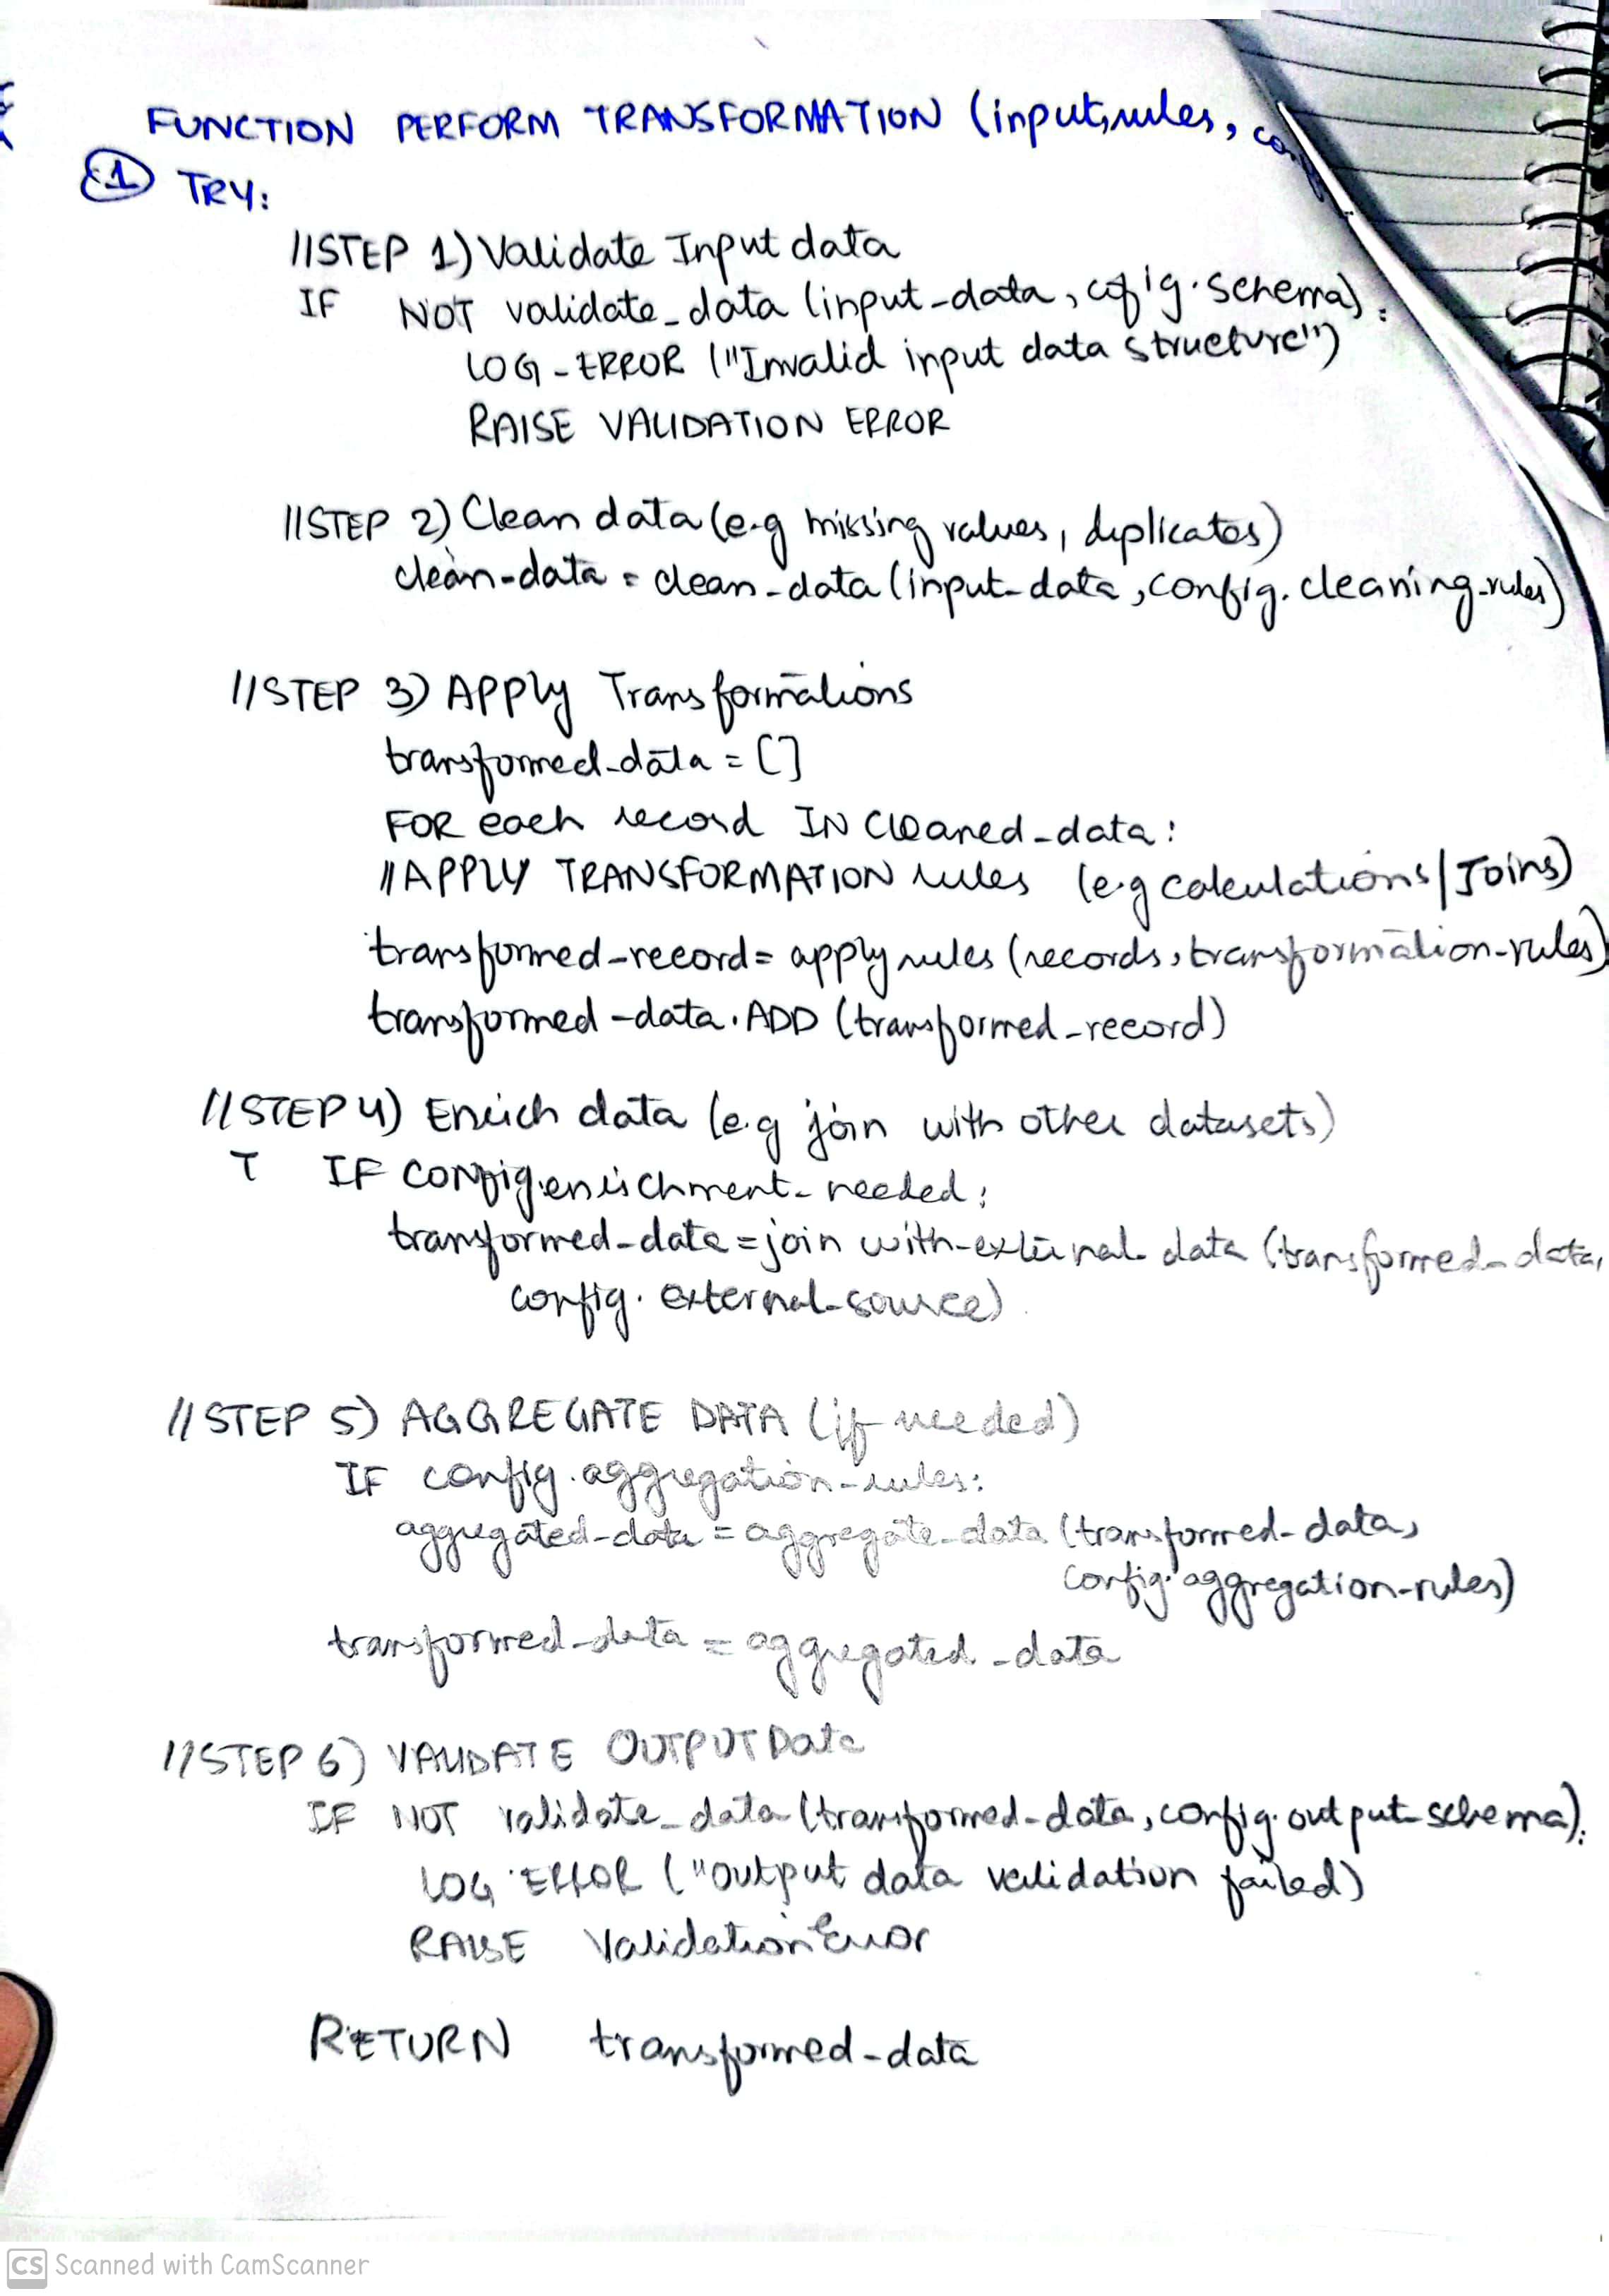 FUNCTION PERFORM TRANSFORMATION (input,rules,
1 TRY:
//STEP 1) Validate Input data
IF NOT validate_data (input-data, cofig.schema):
LOG-ERROR ("Invalid input data structure")
RAISE VALIDATION ERROR
//STEP 2) Clean data (e.g missing values, duplicates)
clean-data = clean-data (input-data, config.cleaning-rules)
//STEP 3) APPly Transformations
transformed-data = []
FOR each record IN cleaned-data:
// APPLY TRANSFORMATION rules (e.g calculations/Joins)
transformed-record= apply rules (records, transformation-rules)
transformed-data.ADD (transformed-record)
//STEP 4) Enrich data (e.g join with other datasets)
T IF config.enrichment-needed:
transformed-data = join with-external-data (transformed-data,
config.external-source)
//STEP 5) AGGREGATE DATA (if needed)
IF config.aggregation-rules:
aggregated-data = aggregate-data (transformed-data,
config.aggregation-rules)
transformed-data = aggregated-data
//STEP 6) VALIDATE OUTPUT Data
IF NOT validate_data (transformed-data, config.output-schema):
LOG ERROR ("output data validation failed)
RAISE ValidationError
RETURN transformed-data
CS Scanned with CamScanner